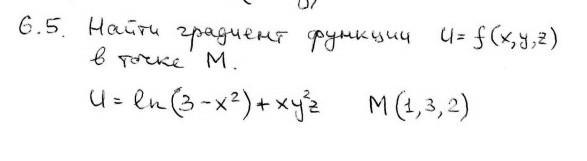 6.5. Найти градиент функции u = f(x,y,z)
в точке M.
u = ln(3 - x²) + xy²z M(1,3,2)